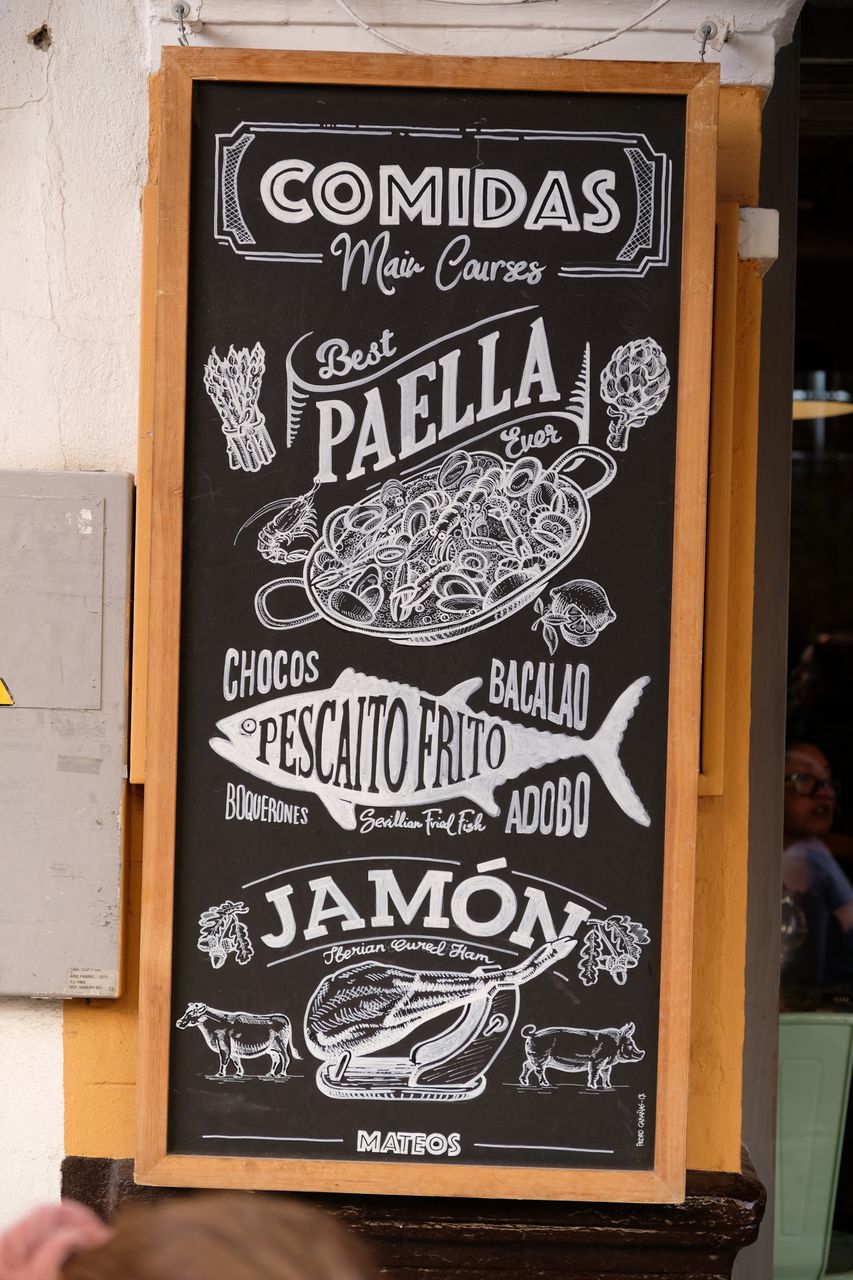 COMIDAS
Main Courses
Best
PAELLA
Ever
CHOCOS
BACALAO
PESCAITO FRITO
BOQUERONES
Sevillian Fried Fish
ADOBO
JAMÓN
Iberian Cured Ham
MATEOS